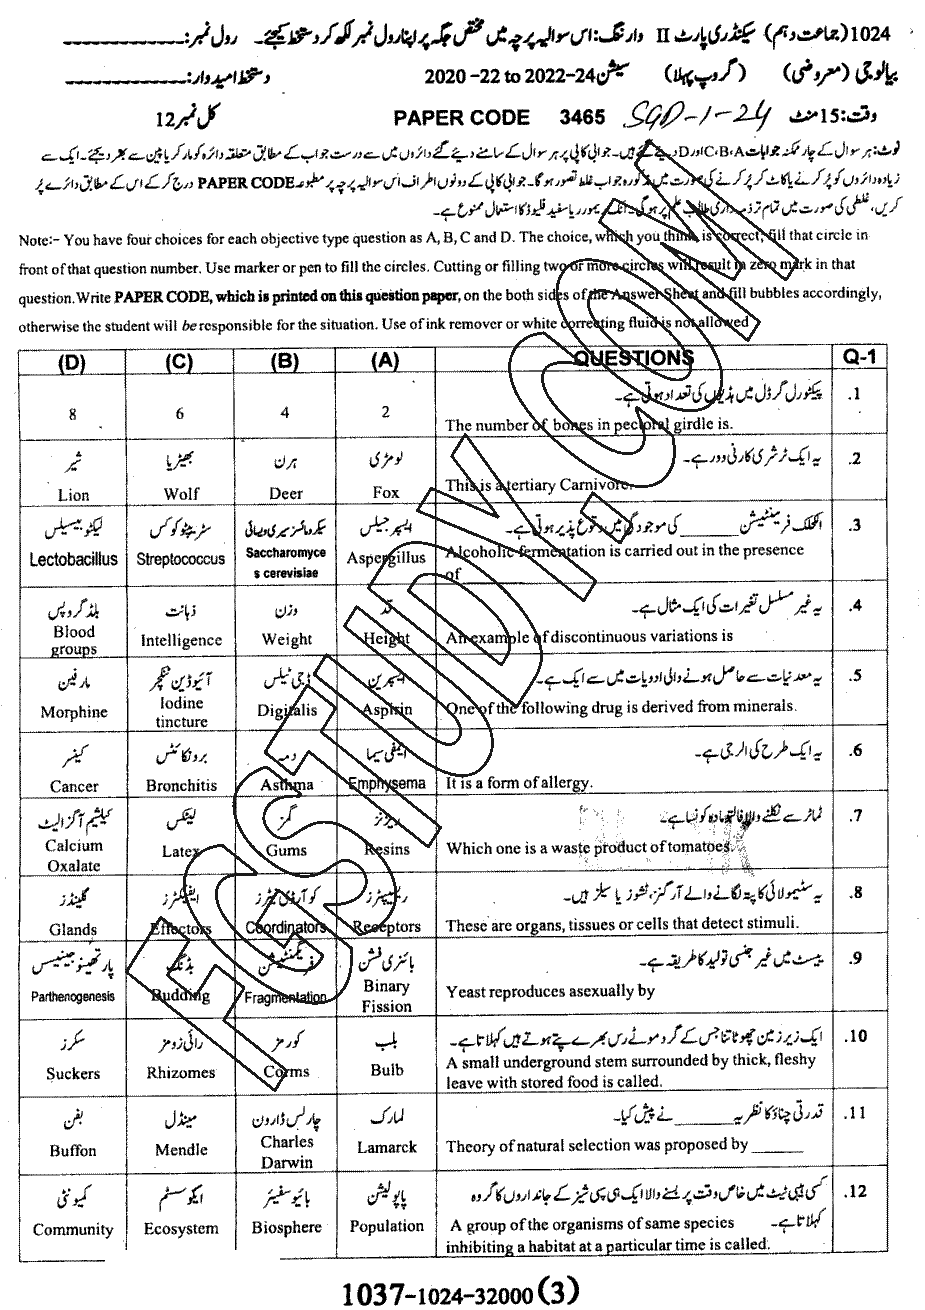 1024 (جماعت دہم) سیکنڈری پارٹ II وارننگ: اس سوالیہ پرچہ میں مختص جگہ پر اپنا رول نمبر لکھ کر دستخط کیجئے۔ رول نمبر: ________
بیالوجی (معروضی) (گروپ پہلا) سیشن 2020-22 to 2022-24 دستخط امیدوار: ________
وقت: 15 منٹ SGD-1-24 PAPER CODE 3465 کل نمبر 12
نوٹ: ہر سوال کے چار ممکنہ جوابات A، B، C اور D دیئے گئے ہیں۔ جوابی کاپی پر ہر سوال کے سامنے دیئے گئے دائروں میں سے درست جواب کے مطابق متعلقہ دائرہ کو مارکر یا پین سے بھر دیجئے۔ ایک سے
زیادہ دائروں کو پُر کرنے یا کاٹ کر پُر کرنے کی صورت میں مذکورہ جواب غلط تصور ہوگا۔ جوابی کاپی کے دونوں اطراف اس سوالیہ پرچہ پر مطبوعہ PAPER CODE درج کر کے اس کے مطابق دائرے پُر
کریں، غلطی کی صورت میں تمام تر ذمہ داری طالب علم پر ہوگی۔ انک ریموور یا سفید فلیوڈ کا استعمال ممنوع ہے۔
Note:- You have four choices for each objective type question as A, B, C and D. The choice, which you think is correct; fill that circle in
front of that question number. Use marker or pen to fill the circles. Cutting or filling two or more circles will result in zero mark in that
question. Write PAPER CODE, which is printed on this question paper, on the both sides of the Answer Sheet and fill bubbles accordingly,
otherwise the student will be responsible for the situation. Use of ink remover or white correcting fluid is not allowed
(D) (C) (B) (A) QUESTIONS Q-1
پیکٹورل گرڈل میں ہڈیوں کی تعداد ہوتی ہے۔ .1
8 6 4 2 The number of bones in pectoral girdle is.
شیر بھیڑیا ہرن لومڑی یہ ایک ٹرشری کارنی وور ہے۔ .2
Lion Wolf Deer Fox This is a tertiary Carnivore.
لیکٹوبیسیلس سٹریپٹوکوکس سیکرومائسز سیری ویسائی ایسپرجیلس الکحلک فرمینٹیشن ______ کی موجودگی میں وقوع پذیر ہوتی ہے۔ .3
Lectobacillus Streptococcus Saccharomyce
s cerevisiae Aspergillus Alcoholic fermentation is carried out in the presence
of ______
بلڈ گروپس ذہانت وزن قد یہ غیر مسلسل تغیرات کی ایک مثال ہے۔ .4
Blood
groups Intelligence Weight Height An example of discontinuous variations is
مارفین آئیوڈین ٹنکچر ڈجی ٹیلس ایسپرین یہ معدنیات سے حاصل ہونے والی ادویات میں سے ایک ہے۔ .5
Morphine Iodine
tincture Digitalis Aspirin One of the following drug is derived from minerals.
کینسر برونکائٹس دمہ ایمفی سیما یہ ایک طرح کی الرجی ہے۔ .6
Cancer Bronchitis Asthma Emphysema It is a form of allergy.
کیلشیم آگزالیٹ لیٹکس گمز ریزنز ٹماٹر سے نکلنے والا فالتو مادہ کونسا ہے۔ .7
Calcium
Oxalate Latex Gums Resins Which one is a waste product of tomatoes.
گلینڈز ایفیکٹرز کوآرڈی نیٹرز ریسیپٹرز یہ سٹیمولائی کا پتہ لگانے والے آرگنز، ٹشوز یا سیلز ہیں۔ .8
Glands Effectors Coordinators Receptors These are organs, tissues or cells that detect stimuli.
پارتھینوجینیسس بڈنگ فریگمنٹیشن بائنری فشن ییسٹ میں غیر جنسی تولید کا طریقہ ہے۔ .9
Parthenogenesis Budding Fragmentation Binary
Fission Yeast reproduces asexually by
سکرز رائی زومز کورمز بلب ایک زیر زمین چھوٹا تنا جس کے گرد موٹے رس بھرے پتے ہوتے ہیں کہلاتا ہے۔ .10
Suckers Rhizomes Corms Bulb A small underground stem surrounded by thick, fleshy
leave with stored food is called.
بفن مینڈل چارلس ڈارون لمارک قدرتی چناؤ کا نظریہ ______ نے پیش کیا۔ .11
Buffon Mendle Charles
Darwin Lamarck Theory of natural selection was proposed by ______
کمیونٹی ایکوسسٹم بائیوسفیئر پاپولیشن کسی ہیبی ٹیٹ میں خاص وقت پر بسنے والا ایک ہی سپی شیز کے جانداروں کا گروہ .12
کہلاتا ہے۔
Community Ecosystem Biosphere Population A group of the organisms of same species
inhibiting a habitat at a particular time is called.
1037-1024-32000 (3)
FGSTUDY.COM